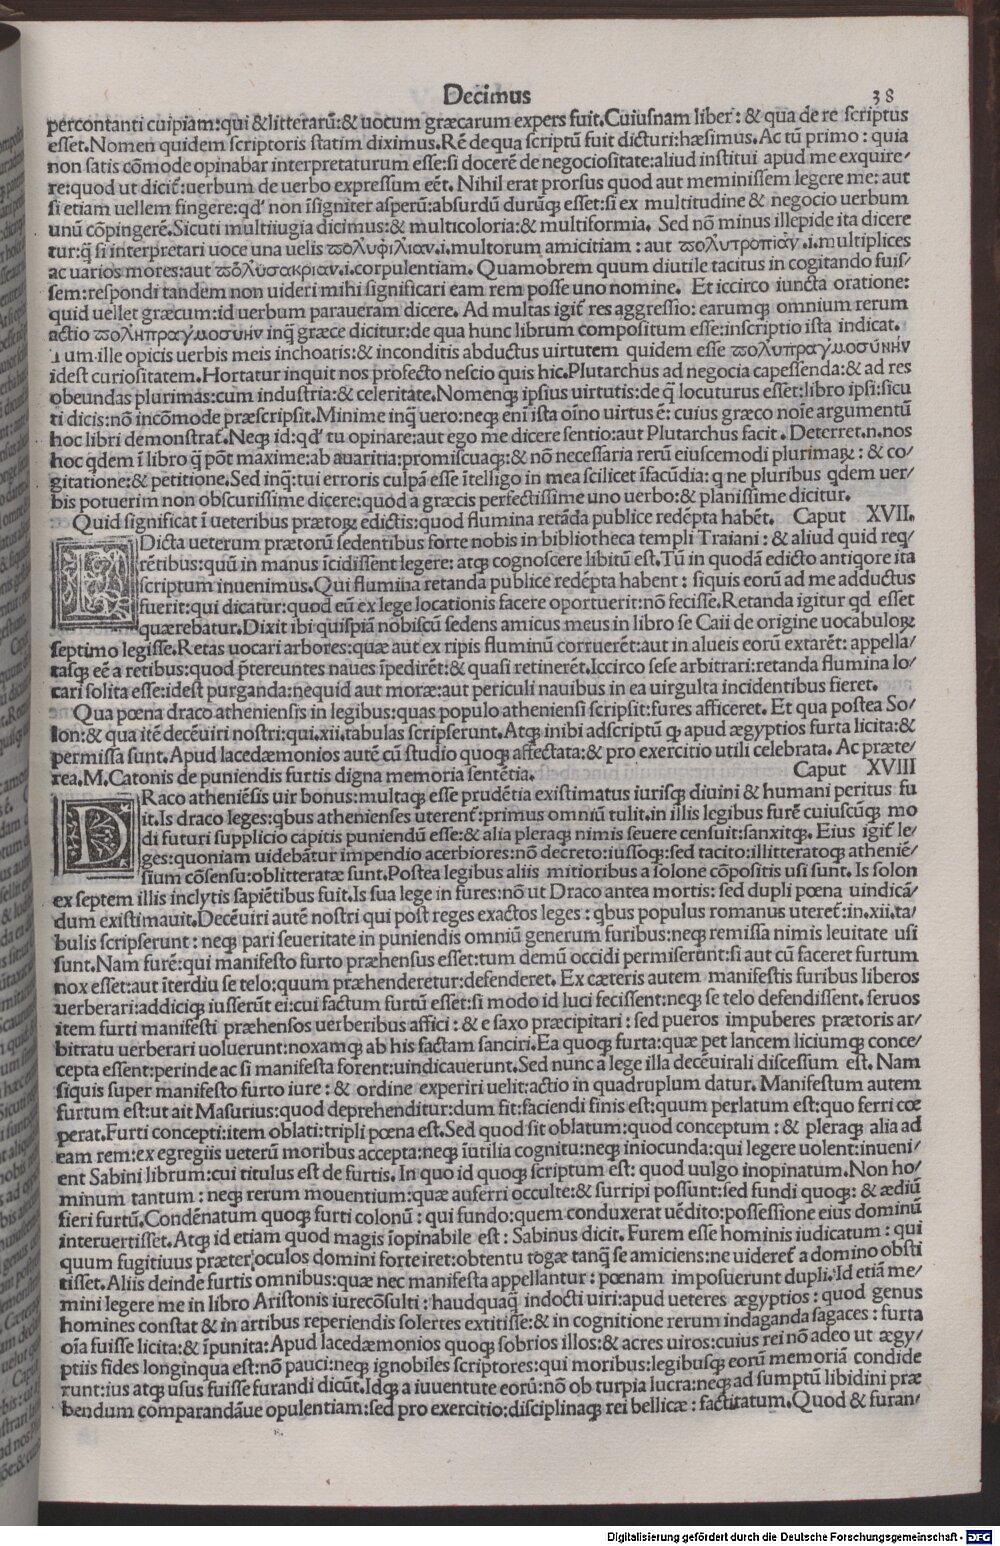 Decimus 38
percontanti cuipiam:qui &litterarū:& uocum græcarum expers fuit.Cuiusnam liber: & qua de re scriptus
esset.Nomen quidem scriptoris statim diximus.Rē de qua scriptū fuit dicturi:hæsimus.Ac tū primo: quia
non satis cōmode opinabar interpretaturum esse:si docerē de negociositate:aliud institui apud me exquire/
re:quod ut dicit̃:uerbum de uerbo expressum eēt. Nihil erat prorsus quod aut meminissem legere me: aut
si etiam uellem fingere:qđ non ī̃signiter asperū:absurdū durūꝗ esset:si ex multitudine & negocio uerbum
unū cōpingerē.Sicuti multiiugia dicimus:& multicoloria:& multiformia. Sed nō minus illepide ita dicere
tur:ꝗ̃ si interpretari uoce una uelis πολυφιλιαν.i.multorum amicitiam: aut πολυτροπιαν.i.multiplices
ac uarios mores:aut πολυσακριαν.i.corpulentiam. Quamobrem quum diutile tacitus in cogitando fuis/
sem:respondi tandem non uideri mihi significari eam rem posse uno nomine. Et iccirco iuncta oratione:
quid uellet græcum:id uerbum paraueram dicere. Ad multas igit̃ res aggressio: earumꝗ omnium rerum
actio πολnπραγμοσυην inꝗ̃ græce dicitur:de qua hunc librum compositum esse:inscriptio ista indicat.
Tum ille opicis uerbis meis inchoatis:& inconditis abductus uirtutem quidem esse πολυπραγμοσυνην
idest curiositatem.Hortatur inquit nos profecto nescio quis hic.Plutarchus ad negocia capessenda:& ad res
obeundas plurimas:cum industria:& celeritate.Nomenꝗ ipsius uirtutis:de ꝗ̃ locuturus esset:libro ipsi:sicu
ti dicis:nō incōmode præscripsit.Minime inꝗ̃ uero:neꝗ enī ista oīno uirtus ē: cuius græco noīe argumentū
hoc libri demonstrat̃.Neꝗ id:qđ tu opinare:aut ego me dicere sentio:aut Plutarchus facit.Deterret.n.nos
hoc qdem ī libro ꝗ̃ pōt maxime:ab auaritia:promiscuaꝗ:& nō necessaria rerū eiuscemodi plurimaꝝ: & co/
gitatione:& petitione.Sed inꝗ̃:tui erroris culpā esse ītelligo in mea scilicet īfacūdia: q ne pluribus qdem uer/
bis potuerim non obscurissime dicere:quod a græcis perfectissime uno uerbo:& planissime dicitur.
Quid significat ī ueteribus prætoꝝ edictis:quod flumina retāda publice redēpta habēt. Caput XVII.
EDicta ueterum prætorū sedentibus forte nobis in bibliotheca templi Traiani: & aliud quid req̄/
rētibus:quū in manus īcidissent legere: atꝗ cognoscere libitū est.Tū in quodā edicto antiqore ita
scriptum inuenimus.Qui flumina retanda publice redēpta habent: siquis eorū ad me adductus
fuerit:qui dicatur:quod eū ex lege locationis facere oportuerit:nō fecisse.Retanda igitur qd esset
quærebatur.Dixit ibi quispiā nobiscū sedens amicus meus in libro se Caii de origine uocabuloꝝ
septimo legisse.Retas uocari arbores:quæ aut ex ripis fluminū corruerēt:aut in alueis eorū extarēt: appella/
tasꝗ eē a retibus:quod p̃tereuntes naues īpedirēt:& quasi retinerēt.Iccirco sese arbitrari:retanda flumina lo/
cari solita esse:idest purganda:nequid aut moræ:aut periculi nauibus in ea uirgulta incidentibus fieret.
Qua pœna draco atheniensis in legibus:quas populo atheniensi scripsit:fures afficeret. Et qua postea So/
lon:& qua itē decēuiri nostri:qui.xii.tabulas scripserunt.Atꝗ inibi adscriptū ꝙ apud ægyptios furta licita:&
permissa sunt.Apud lacedæmonios autē cū studio quoꝗ affectata:& pro exercitio utili celebrata. Ac præte/
rea.M.Catonis de puniendis furtis digna memoria sentētia. Caput XVIII
DRaco atheniēsis uir bonus:multaꝗ esse prudētia existimatus iurisꝗ diuini & humani peritus fu
it.Is draco leges:qbus athenienses uterent̃:primus omniū tulit.in illis legibus furē cuiuscūꝗ mo
di futuri supplicio capitis puniendū esse:& alia pleraꝗ nimis seuere censuit:sanxitꝗ. Eius igit̃ le/
ges:quoniam uidebātur impendio acerbiores:nō decreto:iussoꝗ:sed tacito:illitteratoꝗ atheniē/
sium cōsensu:oblitteratæ sunt.Postea legibus aliis mitioribus a solone cōpositis usi sunt. Is solon
ex septem illis inclytis sapiētibus fuit.Is sua lege in fures:nō ut Draco antea mortis: sed dupli pœna uindicā/
dum existimauit.Decēuiri autē nostri qui post reges exactos leges: qbus populus romanus uteret̃:in.xii.ta/
bulis scripserunt: neꝗ pari seueritate in puniendis omniū generum furibus:neꝗ remissa nimis leuitate usi
sunt.Nam furē:qui manifesto furto præhensus esset:tum demū occidi permiserunt:si aut cū faceret furtum
nox esset:aut īterdiu se telo:quum præhenderetur:defenderet. Ex cæteris autem manifestis furibus liberos
uerberari:addiciꝗ iusserūt ei:cui factum furtū esset:si modo id luci fecissent:neꝗ se telo defendissent. seruos
item furti manifesti præhensos uerberibus affici: & e saxo præcipitari: sed pueros impuberes prætoris ar/
bitratu uerberari uoluerunt:noxamꝗ ab his factam sanciri.Ea quoꝗ furta:quæ pet lancem liciumꝗ conce/
cepta essent:perinde ac si manifesta forent:uindicauerunt.Sed nunc a lege illa decēuirali discessum est. Nam
siquis super manifesto furto iure: & ordine experiri uelit:actio in quadruplum datur. Manifestum autem
furtum est:ut ait Masurius:quod deprehenditur:dum fit:faciendi finis est:quum perlatum est:quo ferri cœ
perat.Furti concepti:item oblati:tripli pœna est.Sed quod sit oblatum:quod conceptum: & pleraꝗ alia ad
eam rem:ex egregiis ueterū moribus accepta:neꝗ īutilia cognitu:neꝗ iniocunda:qui legere uolent:inueni/
ent Sabini librum:cui titulus est de furtis. In quo id quoꝗ scriptum est: quod uulgo inopinatum.Non ho/
minum tantum: neꝗ rerum mouentium:quæ auferri occulte:& surripi possunt:sed fundi quoꝗ: & ædiū
fieri furtū.Condēnatum quoꝗ furti colonū: qui fundo:quem conduxerat uēdito:possessione eius dominū
interuertisset.Atꝗ id etiam quod magis īopinabile est: Sabinus dicit. Furem esse hominis iudicatum: qui
quum fugitiuus præter oculos domini forte iret:obtentu togæ tanꝗ̃ se amiciens:ne uideret̃ a domino obsti
tisset.Aliis deinde furtis omnibus:quæ nec manifesta appellantur: pœnam imposuerunt dupli.Id etiā me/
mini legere me in libro Aristonis iurecōsulti: haudquaꝗ̃ indocti uiri:apud ueteres ægyptios: quod genus
homines constat & in artibus reperiendis solertes extitisse:& in cognitione rerum indaganda sagaces: furta
oīa fuisse licita:& īpunita:Apud lacedæmonios quoꝗ sobrios illos:& acres uiros:cuius rei nō adeo ut ægy/
ptiis fides longinqua est:nō pauci:neꝗ ignobiles scriptores:qui moribus:legibusꝗ eorū memoriā condide
runt:ius atꝗ usus fuisse furandi dicūt.Idꝗ a iuuentute eorū:nō ob turpia lucra:neꝗ ad sumptū libidini præ
bendum comparandāue opulentiam:sed pro exercitio:disciplinaꝗ rei bellicæ: factitatum.Quod & furan/
Digitalisierung gefördert durch die Deutsche Forschungsgemeinschaft - DFG